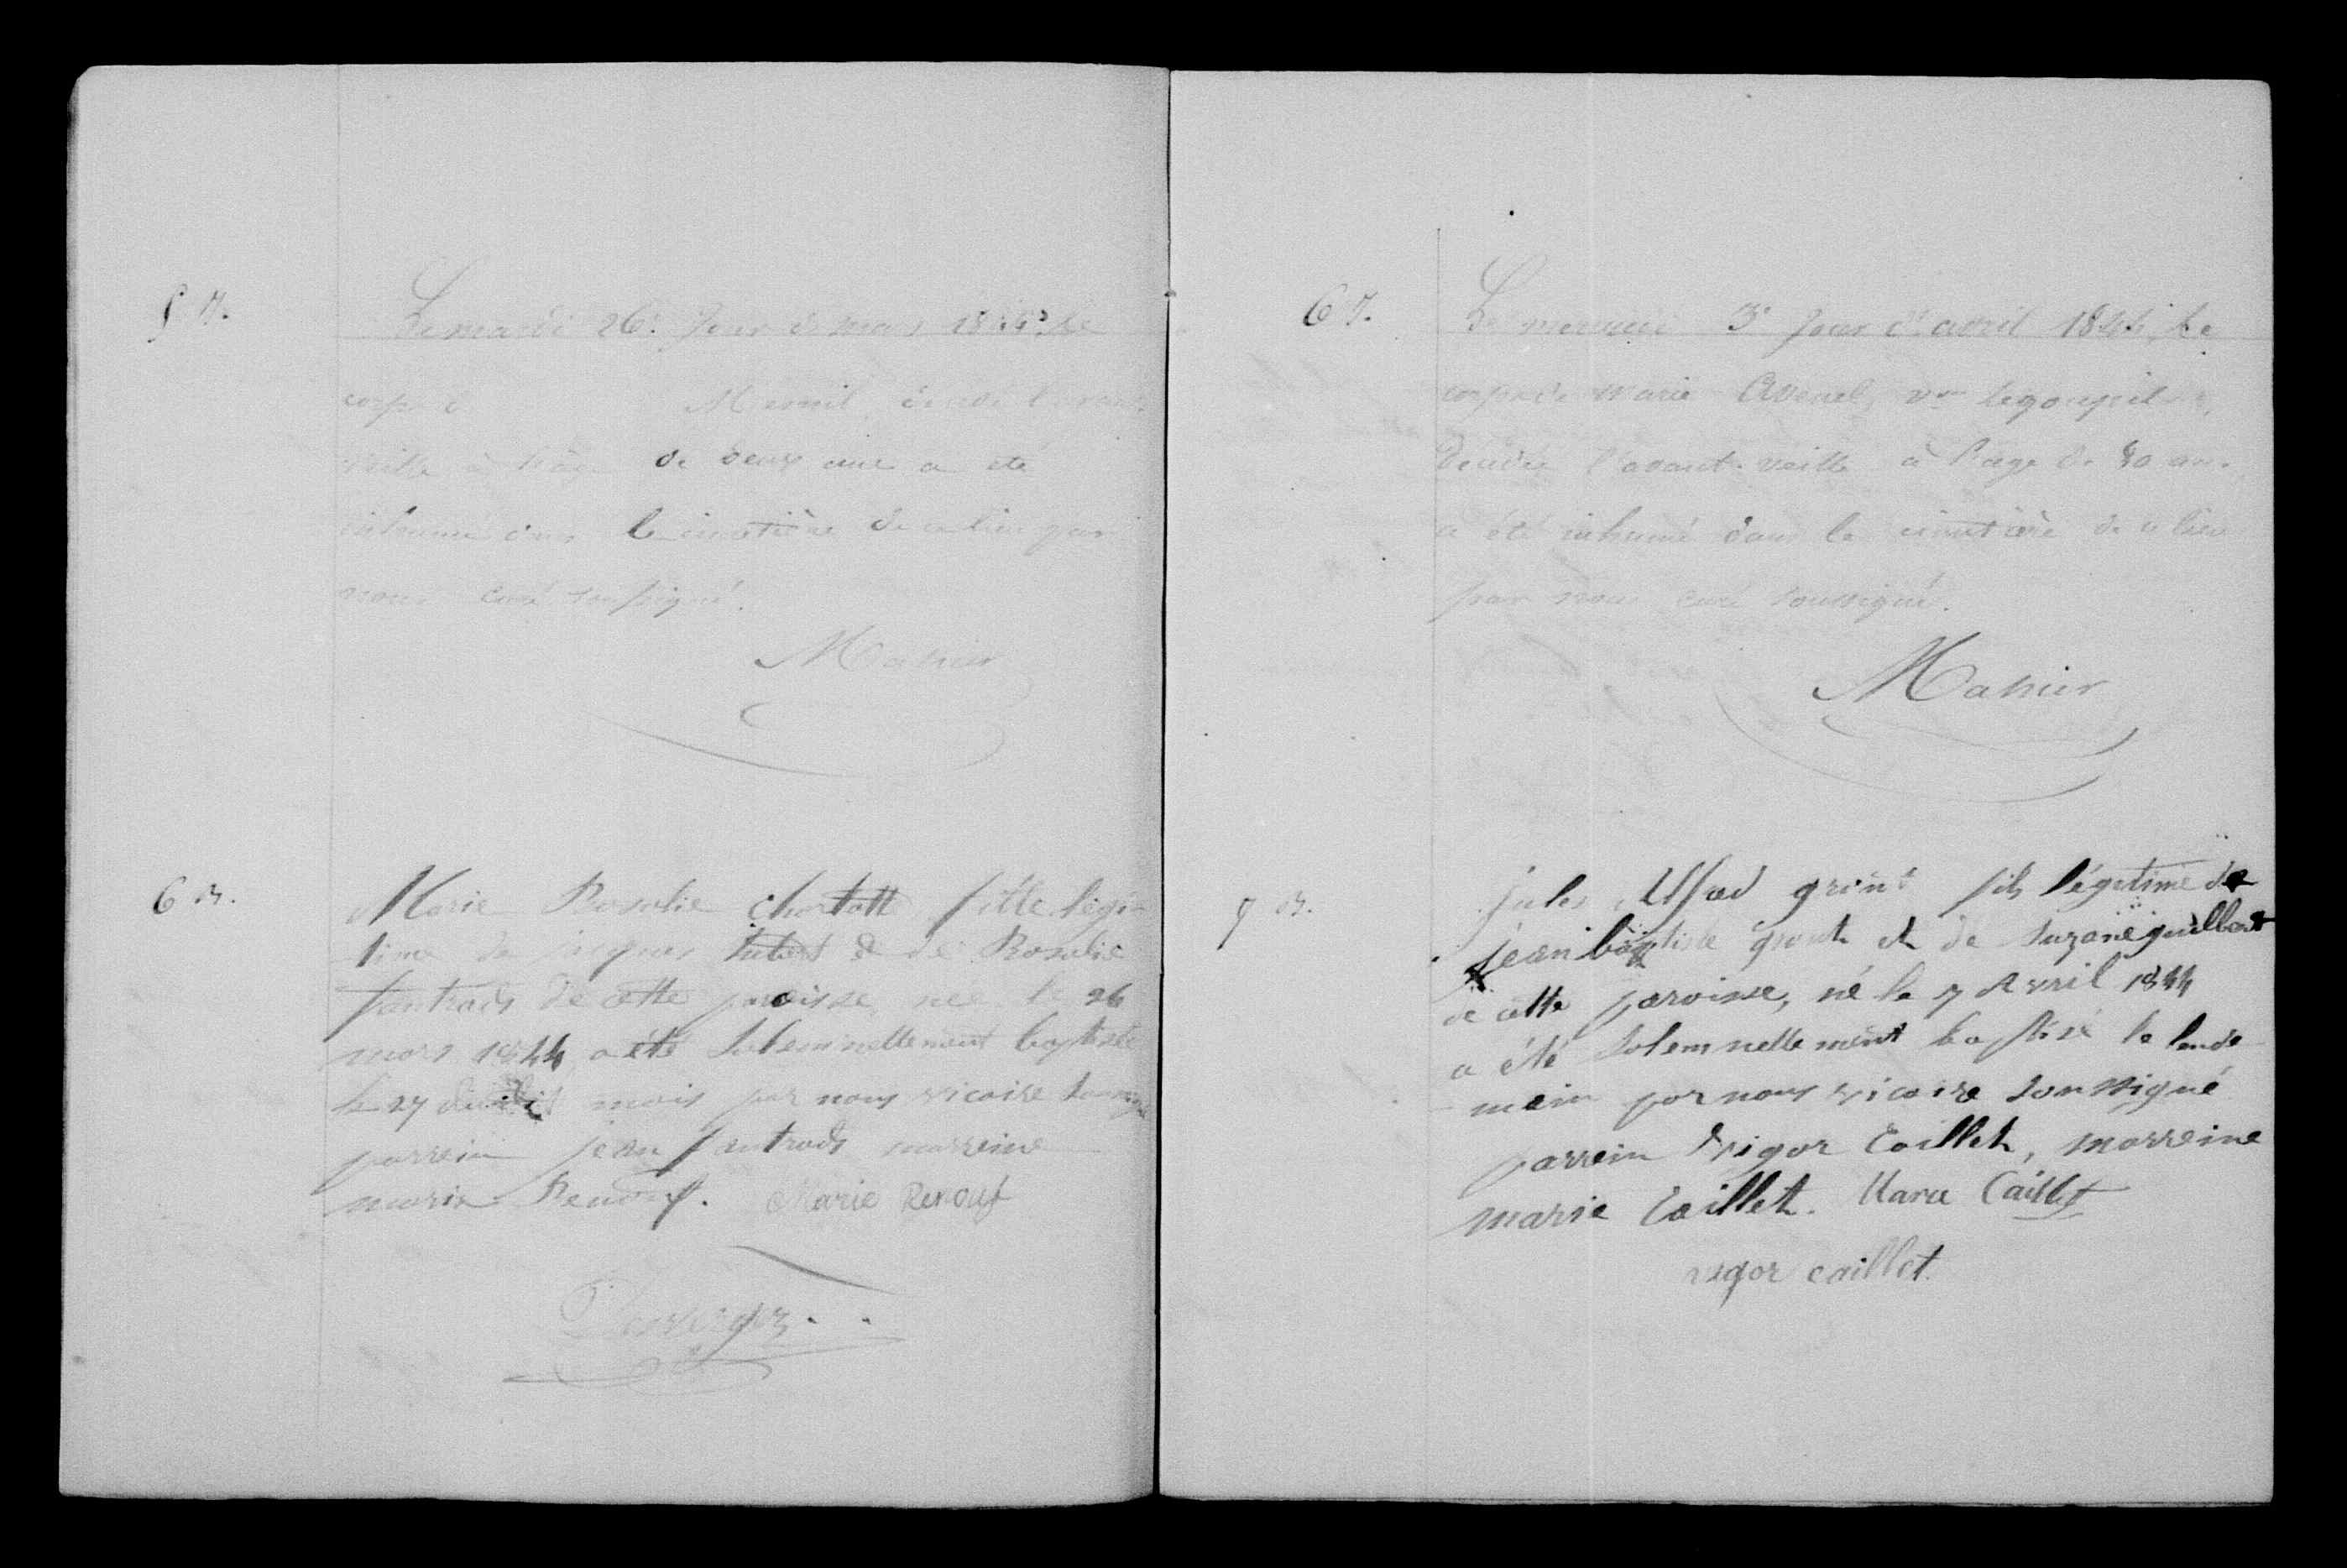 Le mardi 26e Jour de mars 1844 le
corps d Mesnil, décédé l'avant
veille à l'âge de deux ans a été
inhumé dans le cimetière de ce lieu par
nous curé soussigné.
Mahier
6 B.
Marie Rosalie Charlotte fille légi-
time de jacques & de Rosalie
fautrads de cette paroisse, née le 26
mars 1844 a été Solemnellement baptisée
le 27 mois par nous vicaire soussigné
parrein jean fautrads marreine
marie Renouf. Marie Renouf
6
Le mercredi 3e Jour d'avril 1844, le
corps de Marie Avenel, vve Legoupil
Décédée l'avant-veille à l'âge de 80 ans
a été inhumé dans le cimetière de ce lieu
par nous curé soussigné.
Mahier
7 B.
Jules Alfred grout fils légitime de
jean baptiste grout et de Suzane
de cette paroisse, né le 7 Avril 1844
a été Solemnellement baptisé le lende
main par nous vicaire soussigné
parrein vigor Caillet, marreine
marie Caillet. Marie Caillet
vigor caillet.